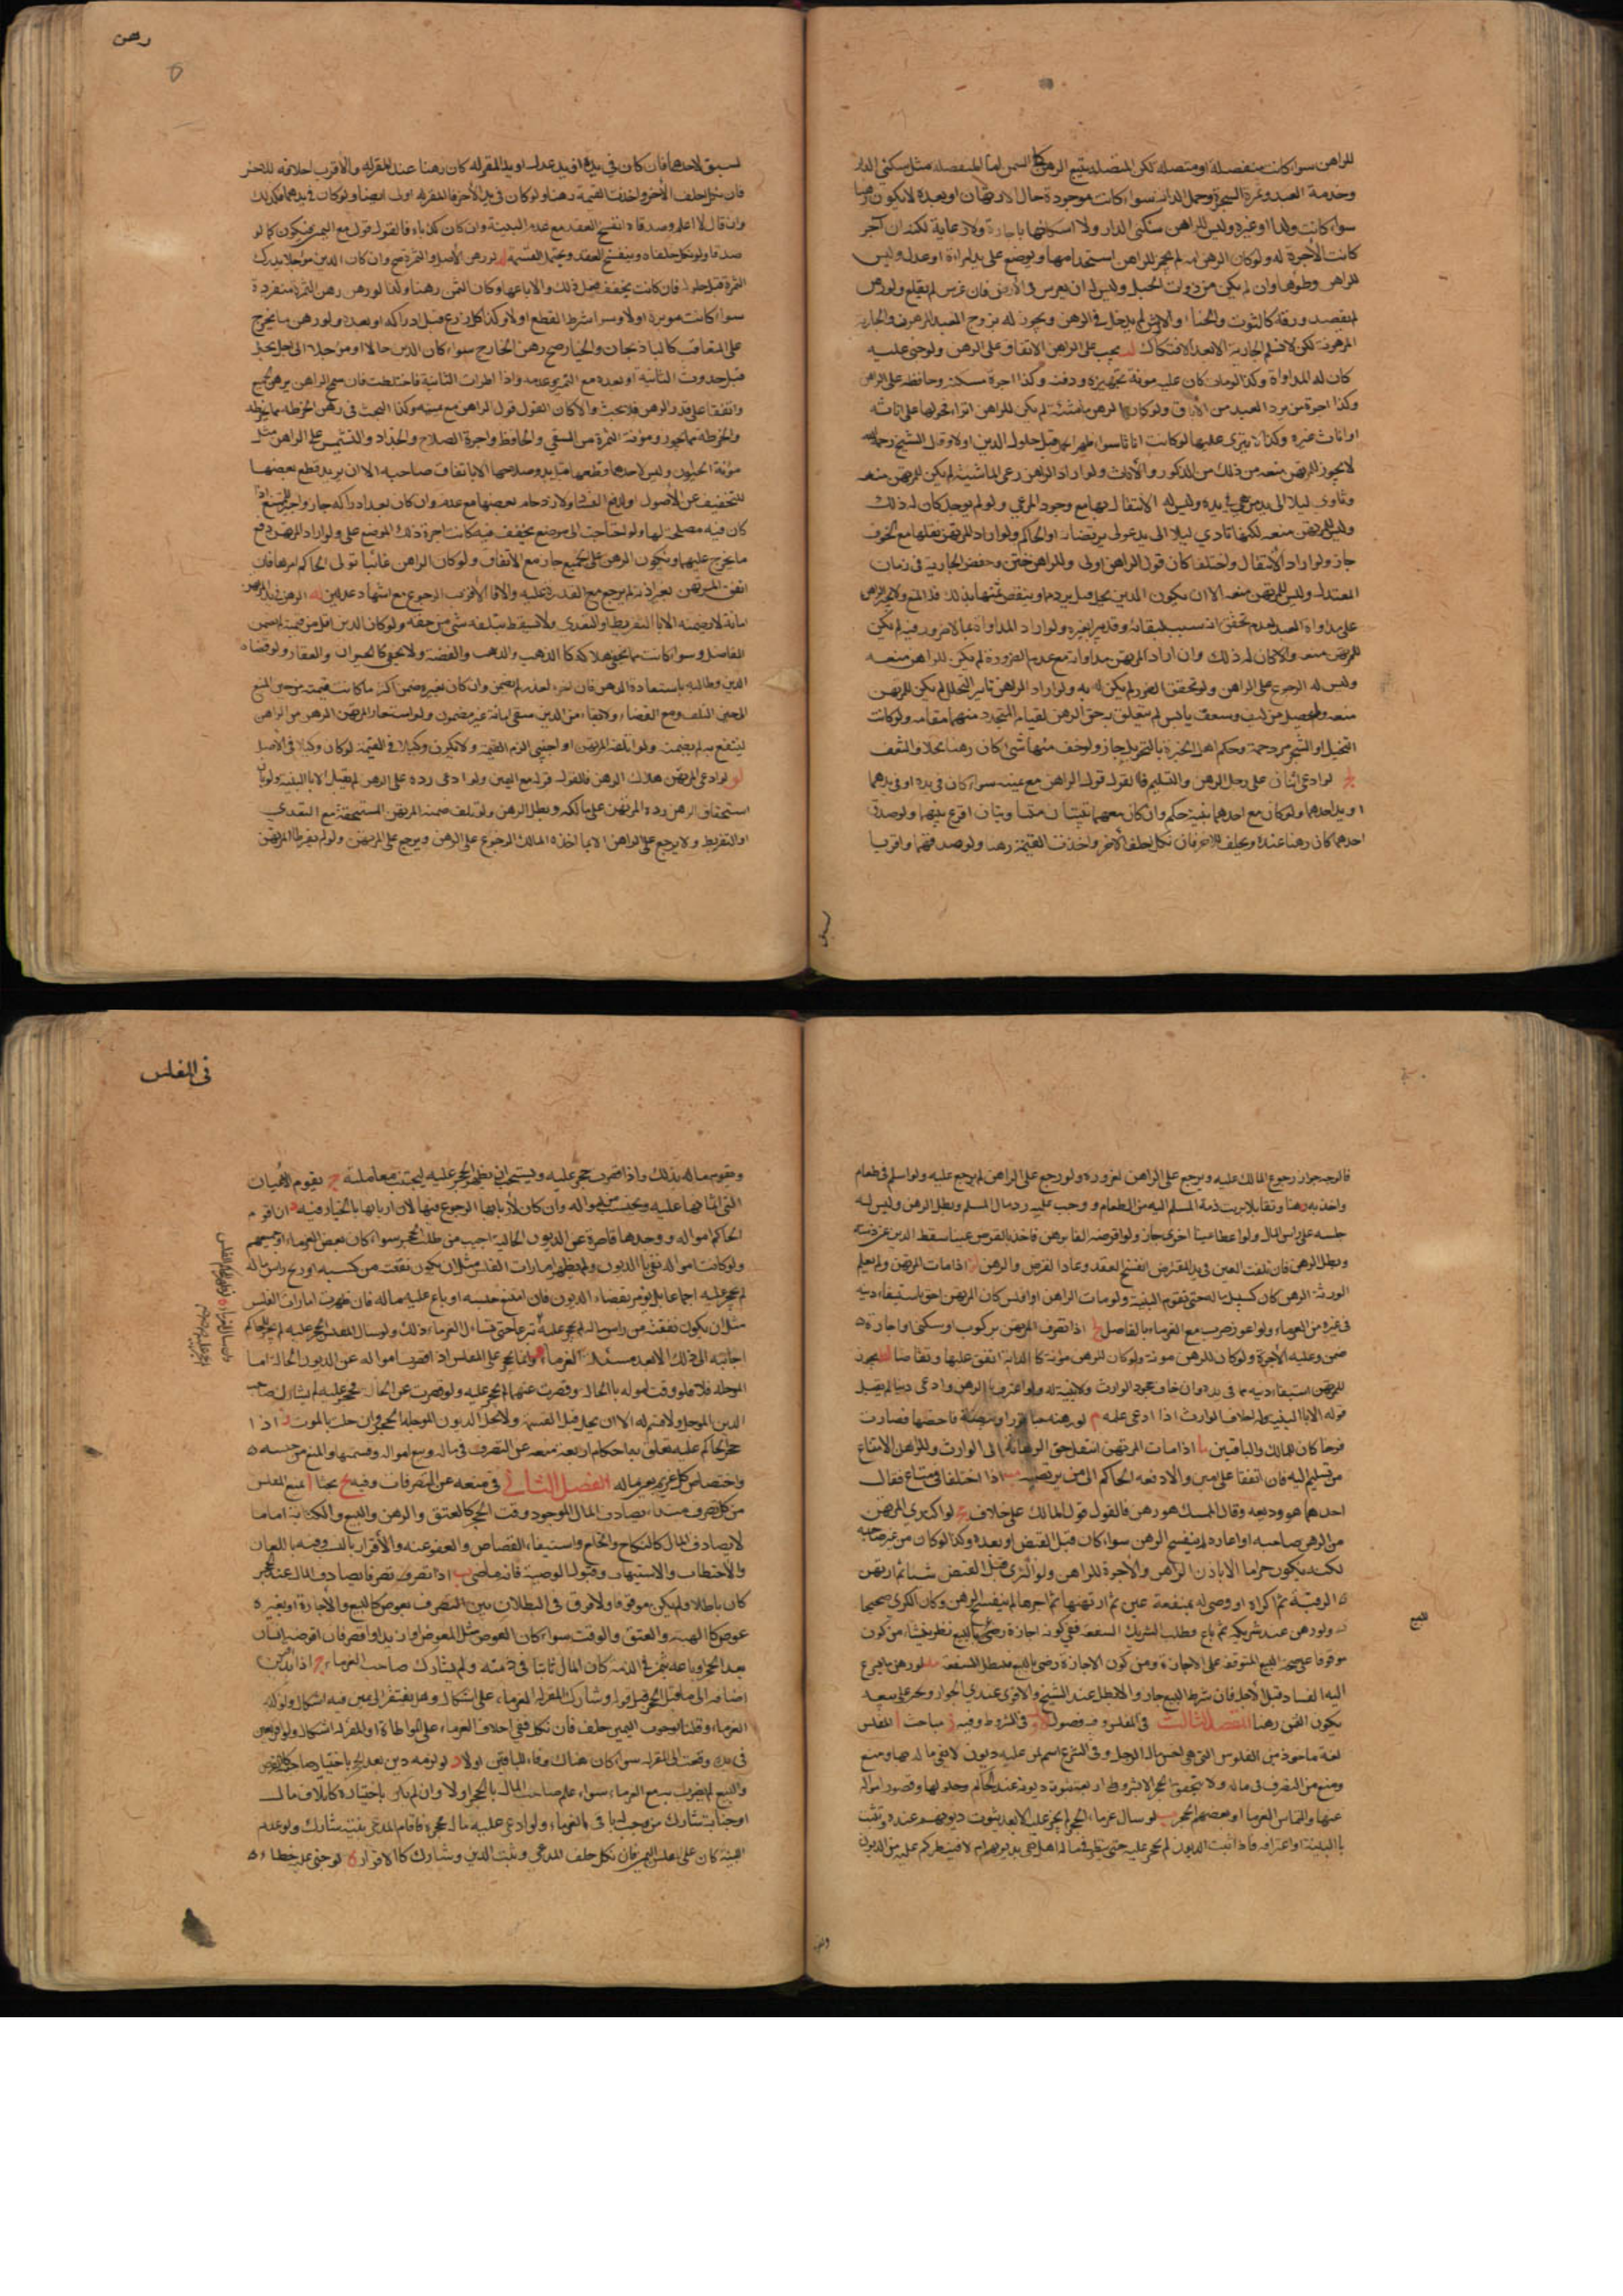 للراهن سواء كانت منفصلة او متصلة لكن المتصلة يتبع الرهن كالسمن اما المنفصلة مثل سكنى الدار
وخدمة العبد وثمرة الشجرة وحمل الدابة سواء كانت موجودة حال الارتهان او بعده لا يكون رهنا
سواء كانت ولدا او غيره وليس للراهن سكنى الدار ولا اسكانها باجارة ولا رعاية لكنه ان آجر
كانت الأجرة له ولو كان الرهن امة لم يجز للراهن استخدامها ويوضع على يد امراة او عدل وليس
للراهن وطؤها وان لم يكن من ذوات الحبل وليس له ان يغرس في الأرض فان غرس لم يقلع ولو رهن
ما يقصد ورقه كالتوت والحناء والآس لم يدخل في الرهن ويجوز له تزويج العبد المرهون والجارية
المرهونة لكن لا تسلم الجارية الا بعد الافتكاك يجب على الراهن الانفاق على الرهن ولو جنى عليه
كان له المداواة وكذا لو مات كان عليه مونة تجهيزه ودفنه وكذا اجرة مسكنه وحافظه على الراهن
وكذا اجرة من يرد العبد من الاباق ولو كان الرهن ماشية لم يكن للراهن انزاء فحولها على اناثه
لا يجوز للمرتهن منعه من ذلك من الذكور والأناث ولو اراد الراهن رعى الماشية لم يكن للمرتهن منعه
وتاوى ليلا الى يد من هي في يده وليس له الانتقال بها مع وجود المرعى ولو لم يوجد كان له ذلك
وليس للمرتهن منعه لكنها تاوي ليلا الى يد عدل يرتضيانه او الحاكم ولو اراد المرتهن نقلها مع الخوف
جاز ولو اراد الانتقال واختلفا كان قول الراهن اولى وللراهن ختن وخفض الجارية في زمان
المعتدل وليس للمرتهن منعه الا ان يكون الدين يحل قبل برءهما وينقص ثمنها بذلك فله المنع ولا يجبر الراهن
للمرتهن منعه والا كان له ذلك وان اراد المرتهن مداواته مع عدم الضرورة لم يكن للراهن منعه
وليس له الرجوع على الراهن ولو تحقق الضرر لم يكن له به ولو اراد الراهن تابير النخل لم يكن للمرتهن
منعه وما يحصل من ليف وسعف يابس لم يتعلق به حق الرهن لقيام المتجدد منهما مقامه ولو كانت
النخيل او الشجر مزدحمة وحكم اهل الخبرة بالتحويل جاز ولو جف منها شئ كان رهنا بخلاف السعف
لو ادعى اثنان على رجل الرهن والتسليم فالقول قول الراهن مع يمينه سواء كان في يده او في يدهما
او يد احدهما ولو كان مع احدهما بينة حكم وان كان معهما بينتان متساويتان اقرع بينهما ولو صدق
احدهما كان رهنا عنده ويحلف للاخر فان نكل حلف الآخر واخذت القيمة رهنا ولو صدقهما واقر با
لسبق
رهن
لسبق لاحدهما فان كان في يده او يد عدل او يد المقر له كان رهنا عند المقر له والاقرب احلافه للاخر
فان نكل حلف الآخر واخذت القيمة رهنا ولو كان في يد الآخر فالمقر له اولى ايضا ولو كان في يدهما فكذلك
وان قال لا اعلم وصدقاه انفسخ العقد مع عدم البينة وان كذباه فالقول قوله مع اليمين فيكون كما لو
صدقا ولو نكل حلفاه وينفسخ العقد ويحتمل القسمة لو رهن الأصل والثمرة صح وان كان الدين مؤجلا يدرك
الثمرة قبل حلوله فان كانت يجفف فعل ذلك والا باعها وكان الثمن رهنا وكذا لو رهن الثمرة منفردة
سواء كانت موبرة او لا وسواء شرط القطع او لا وكذا كل زرع قبل ادراكه او بعده ولو رهن ما يخرج
على التعاقب كالباذنجان والخيار صح رهن الخارج سواء كان الدين حالا او مؤجلا الى اجل يحل
قبل حدوث الثانية او بعده مع التميز وعدمه واذا طرات الثانية فاختلطت فان سمح الراهن برهن الجميع
واتفقا على قدر الرهن فلا بحث والا كان القول قول الراهن مع يمينه وكذا البحث في رهن الخرطة مما يخرط
والخرطة مما يجز ومونة الثمرة من السقي والحافظ واجرة الصلاح والجداد والتشميس على الراهن مثل
مؤنة الحيوان وليس لاحدهما قطعها قبل بدو صلاحها الا باتفاق صاحبه الا ان يريد قطع بعضها
للتخفيف عن الأصول او لدفع الفساد ولازدحام بعضها مع عدمه وان كان بعد ادراكه جاز واجبر الممتنع اذا
كان فيه مصلحة لها ولو احتاجت الى موضع يجفف فيه كانت اجرة ذلك الموضع عليه ولو اراد المرتهن دفع
ما يخرج عليهما ويكون الرهن على الجميع جاز مع الاتفاق ولو كان الراهن غائبا تولى الحاكم امرها فان
انفق المرتهن بغير اذنه لم يرجع مع القدرة عليه والا فالأقرب الرجوع مع اشهاد عدلين الرهن في يد المرتهن
امانة لا يضمنه الا بالتفريط او التعدي ولا يسقط بتلفه شئ من حقه ولو كان الدين اقل من قيمته لم يضمن
الفاضل وسواء كانت مما يخفى هلاكه كالذهب والفضة ولا يخفى كالحيوان والعقار ولو قضاه
الدين وطالبه باستعادة الرهن فان اخر لعذر لم يضمن وان كان لغيره ضمن
لينتفع به لم يضمنه ولو اتلفه المرتهن او اجنبي الزم القيمة ولا يكون وكيلا في القيمة لو كان وكيلا في الأصل
لو ادعى المرتهن هلاك الرهن فالقول قوله مع اليمين ولو ادعى رده على الراهن لم يقبل الا بالبينة ولو بان
استحقاق الرهن رده المرتهن على مالكه وبطل الرهن ولو تلف ضمنه المرتهن لمستحقه مع التعدي
او التفريط ولا يرجع على الراهن الا بما اخذه المالك الرجوع على الراهن ويرجع على المرتهن ولو لم يفرط المرتهن
فالوجه جواز رجوع المالك عليه ويرجع على الراهن لغروره ولو رجع على الراهن لم يرجع عليه ولو اسلم في طعام
واخذ به رهنا وتقايلا بريت ذمة المسلم اليه من الطعام ووجب عليه رد مال المسلم وبطل الرهن وليس له
حبسه على راس المال ولو اعطاه عينا اخرى جاز ولو اقرضه الفا برهن فاخذ بالقرض عينا سقط الدين عن ذمته
وبطل الرهن فان تلفت العين في يد المقترض انفسخ العقد وعاد القرض والرهن اذا مات المرتهن ولم يعلم
الورثة الرهن كان كسبيل ماله حتى تقوم البينة ولو مات الراهن او افلس كان المرتهن احق باستيفاء دينه
من غيره من الغرماء ولو اعوز ضرب مع الغرماء بالفاضل اذا تصرف المرتهن بركوب او سكنى او اجارة
ضمن وعليه الأجرة ولو كان للرهن مونة ولو كان للرهن مؤنة كالدابة انفق عليها وتقاصا يجوز
للمرتهن استيفاء دينه مما في يده وان خاف جحود الوارث ولا بينة له ولو اعترف بالرهن وادعى دينا لم يقبل
قوله الا بالبينة وله احلاف الوارث اذا ادعى علمه لو رهنه عصيرا او بيضة فاحضنها فصارت
فرخا كان للمالك والباقين اذا مات المرتهن انتقل حق الرهانة الى الوارث وللراهن الامتناع
من تسليمه اليه فان اتفقا على امين والا دفعه الحاكم الى من يرتضيه اذا اختلفا في متاع فقال
احدهما هو وديعة وقال الممسك هو رهن فالقول قول المالك على خلاف لو اكترى المرتهن
من الراهن صاحبه او اعاره لم ينفسخ الرهن سواء كان قبل القبض او بعده وكذا لو كان من غير صاحبه
لكنه يكون حراما الا باذن الراهن والأجرة للراهن ولو اكترى قبل القبض شيئا ثم ارتهن
الرقبة ثم اكراه او وصى له بمنفعة عين ثم ارتهنها ثم اجرها لم ينفسخ الرهن وكان الكرى صحيحا
لو رهن عند شريكه ثم باع وطلب الشريك الشفعة ففي كونه اجازة رضى بالبيع نظر ينشاء من كون
موقوفا على صحة البيع المتوقف على الاجازة ومن كون الاجازة رضى بالبيع فتبطل الشفعة لو رهن ما يسرع
اليه الفساد قبل الأجل فان شرط البيع جاز والا بطل عند الشيخ والاقوى عندي الجواز ويجبر على بيعه
يكون الثمن رهنا المقصد الثالث في المفلس وفيه فصول الأول في الشروط وفيه مباحث ا المفلس
لغة ماخوذ من الفلوس التي هي اخس مال الرجل وفي الشرع اسم لمن عليه ديون لا يفي ماله بها ومنع
ومنع من التصرف في ماله ولا يتحقق الحجر الا بشروط اربعة ثبوت ديونه عند الحاكم وحلولها وقصور امواله
عنها والتماس الغرماء او بعضهم الحجر لو سال غرماء الحجر لم يحجر عليه الا بعد ثبوت ديونهم عنده وتثبت
بالبينة او اعترافه فاذا ثبتت الديون لم يحجر عليه حتى ينظر في ماله هل يفي بديونهم ام لا فينظر كم عليه من الديون
للبيع
في المفلس
ويقوم ماله بذلك واذا قصرت حجر عليه ويستحب ان يظهر الحجر عليه ليجتنب معاملته يقوم الأعيان
التي اثمانها عليه ويحتسب من امواله وان كان لأربابها الرجوع فيها لان اربابها بالخيار فيه ان اقوم
الحاكم امواله ووجدها قاصرة عن الديون الحالية اجيب من طلب الحجر سواء كان بعض الغرماء او جميعهم
ولو كانت امواله تفي بالديون ولم يظهر امارات الفلس مثل ان يكون نفقته من كسبه او ربح راس ماله
لم يحجر عليه اجماعا بل يؤمر بقضاء الديون فان امتنع حبسه او باع عليه ماله فان ظهرت امارات الفلس
مثل ان يكون نفقته من راس ماله لم يحجر عليه شرعا حتى يساءل الغرماء ذلك ولو سال المفلس الحجر عليه لم يجز للحاكم
اجابته الى ذلك الا بعد مسئلة الغرماء وانما يحجر على المفلس اذا قصرت امواله عن الديون الحالة اما
المؤجلة فلا فلو وفت امواله بالحالة وقصرت عنهما لم يحجر عليه ولو قصرت عن الحالة فحجر عليه لم يشارك صاحب
الدين المؤجل ولا قسم له الا ان يحل قبل القسمة ولا يحل الديون المؤجلة بالحجر وان حلت بالموت اذا
حجر الحاكم عليه تعلق به احكام اربعة منعه عن التصرف في ماله وبيع امواله وقسمتها والمنع من حبسه
واختصاص كل غريم بعين ماله الفصل الثاني في منعه عن التصرفات وفيه بحثا ا يمنع المفلس
من كل تصرف مبتداء يصادف المال الموجود وقت الحجر كالعتق والرهن والبيع والكتابة اما ما
لا يصادف المال كالنكاح والخلع واستيفاء القصاص والعفو عنه والأقرار بالنسب ونفيه باللعان
والأحتطاب والاستيهاب وقبول الوصية فانه ماض اذا تصرف تصرفا يصادف المال عند الحجر
كان باطلا ولم يكن موقوفا ولا فرق في البطلان بين التصرف بعوض كالبيع والأجارة او بغير
عوض كالهبة والعتق والوقف سواء كان العوض مثل المعوض او ازيد او اقصر فان اقرضه انسان
بعد الحجر او باعه بثمن في الذمة كان المال ثابتا في ذمته ولم يشارك صاحبه الغرماء اذا اقر بدين
اضافه الى ما قبل الحجر قبل اقراره وشارك المقر له الغرماء على اشكال وهل يفتقر الى يمين فيه اشكال ولو نكل
الغرماء وقلنا بوجوب اليمين حلف فان نكل ففي احلاف الغرماء على المواطاة او المقر له اشكال ولو اقر بعين
في يده دفعت الى المقر له سواء كان هناك وفاء للباقين او لا لو لزمه دين بعد الحجر باختيار صاحبه كالقرض
والبيع لم يضرب به مع الغرماء سواء علم صاحب المال بالحجر او لا وان لم يكن باختياره كاتلاف مال
او جناية شارك من وجب له باقي الغرماء ولو ادعى عليه مال حجره فاقام المدعى بينة شارك ولو عدم
البينة كان على المفلس اليمين فان نكل حلف المدعي وثبت الدين وشارك كالاقرار لو جنى عليه خطاء